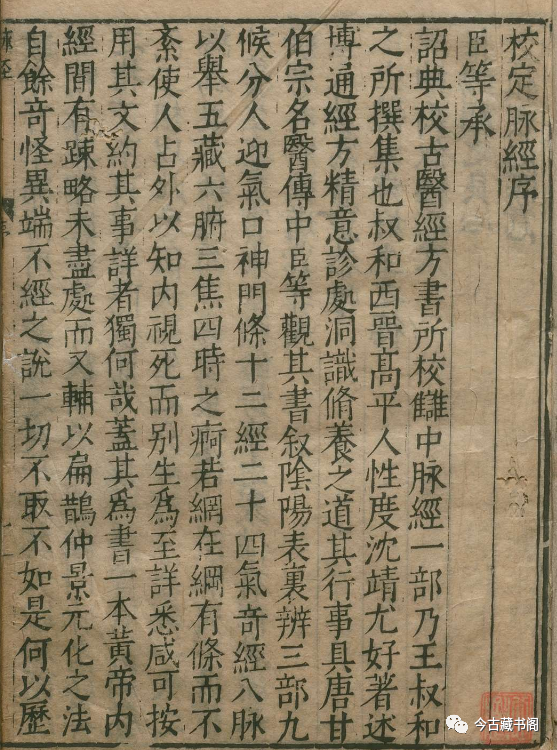 校定脉經序
臣等承
詔典校古醫經方書所校讎中脉經一部乃王叔和
之所撰集也叔和西晉髙平人性度沈靖尤好著述
博通經方精意診處洞識脩養之道其行事具唐甘
伯宗名醫傳中臣等觀其書叙隂陽表裏辨三部九
候分人迎氣口神門條十二經二十四氣奇經八脉
以舉五藏六腑三焦四時之痾若網在綱有條而不
紊使人占外以知内視死而别生為至詳悉咸可按
用其文約其事詳者獨何哉蓋其為書一本黄帝内
經間有踈略未盡處而又輔以扁鵲仲景元化之法
自餘奇怪異端不經之說一切不取不如是何以歷
脉經
今古藏书阁